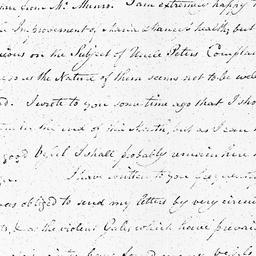 from Mr. Munro. I am extremely happy
Improvements, Maria Frances's health, but
on the Subject of Uncle Peters Complain
as the Nature of them seems not to be well
I wrote to you some time ago that I sho
the end of this Month, but as I can
good Vessel I shall probably remain here
I have written to you frequently
was obliged to send my letters by very circui
the violent Gales which have prevai